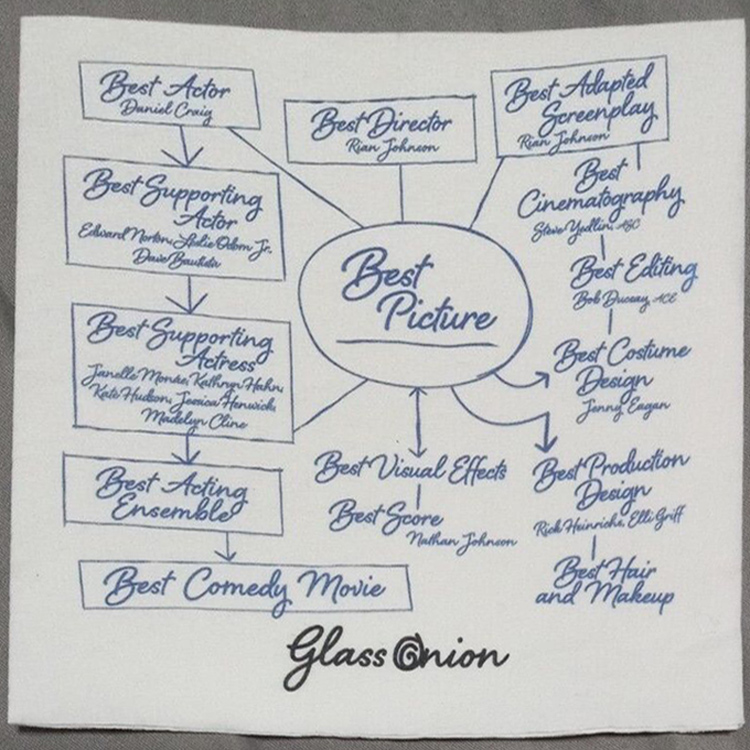 Best Actor
Daniel Craig
Best Director
Rian Johnson
Best Adapted
Screenplay
Rian Johnson
Best Supporting
Actor
Edward Norton, Leslie Odom Jr.
Dave Bautista
Best
Cinematography
Steve Yedlin, ASC
Best Editing
Bob Ducsay, ACE
Best
Picture
Best Supporting
Actress
Janelle Monáe, Kathryn Hahn,
Kate Hudson, Jessica Henwick,
Madelyn Cline
Best Costume
Design
Jenny Eagan
Best Acting
Ensemble
Best Visual Effects
Best Score
Nathan Johnson
Best Production
Design
Rick Heinrichs, Elli Griff
Best Hair
and Makeup
Best Comedy Movie
Glass Onion